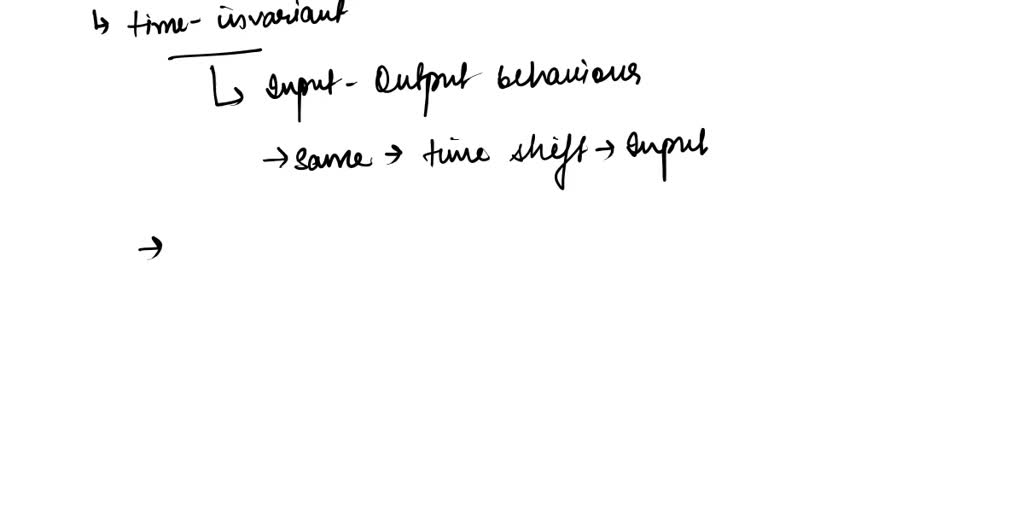 ↳ time-invariant
↳ Input - Output behaviours
→ same → time shift → Input
→